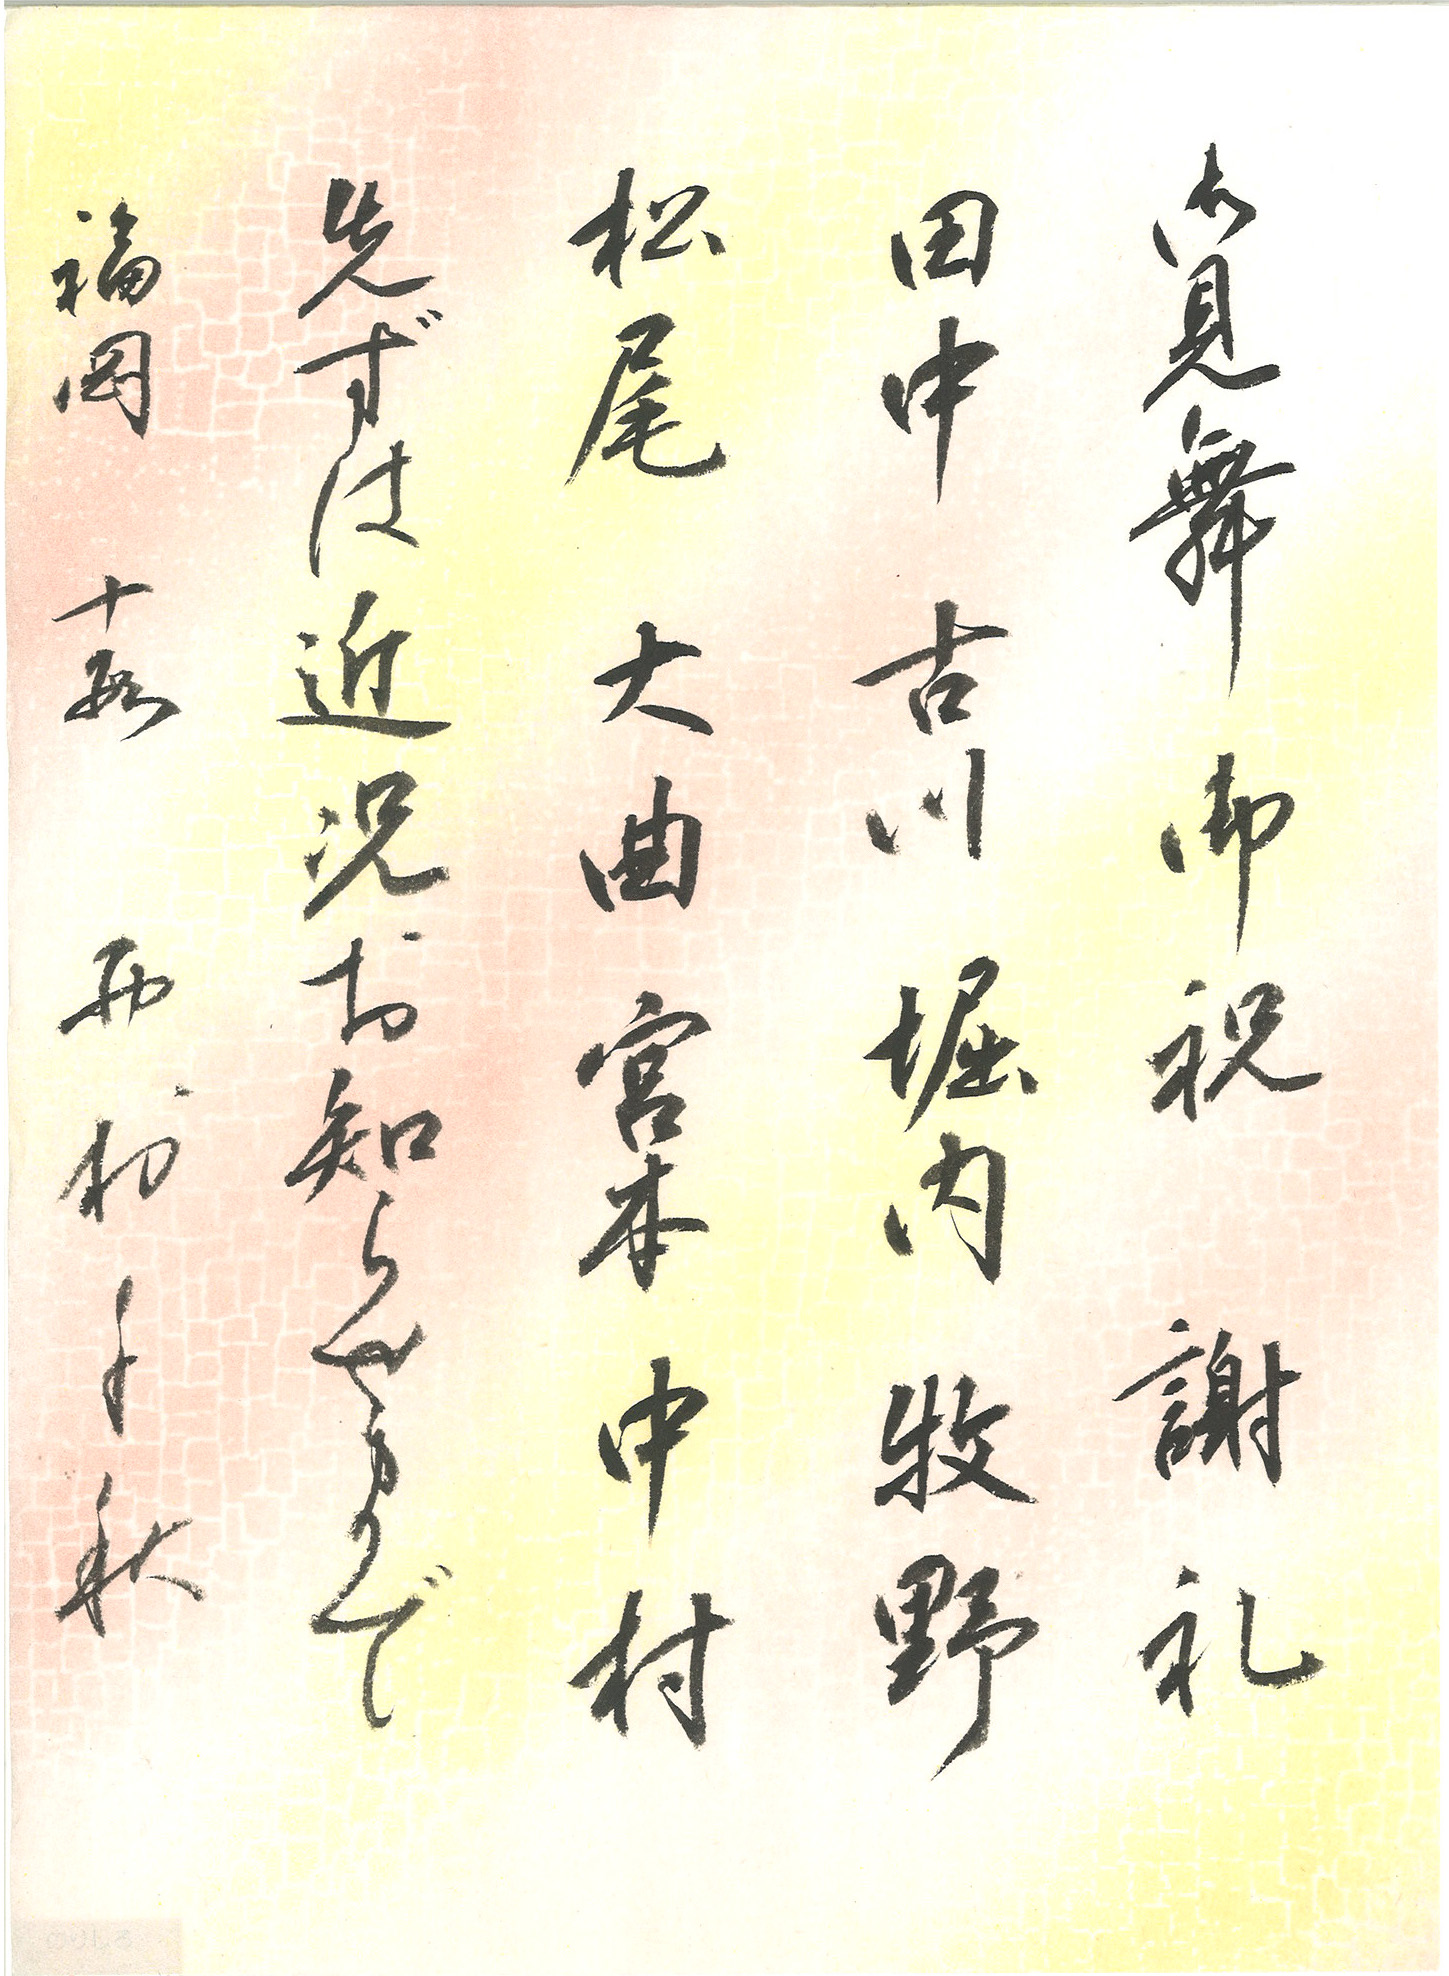 お見舞 御祝 謝礼
田中 古川 堀内 牧野
松尾 大曲 宮本 中村
先ずは近況お知らせまで
福岡 十段 西村千秋